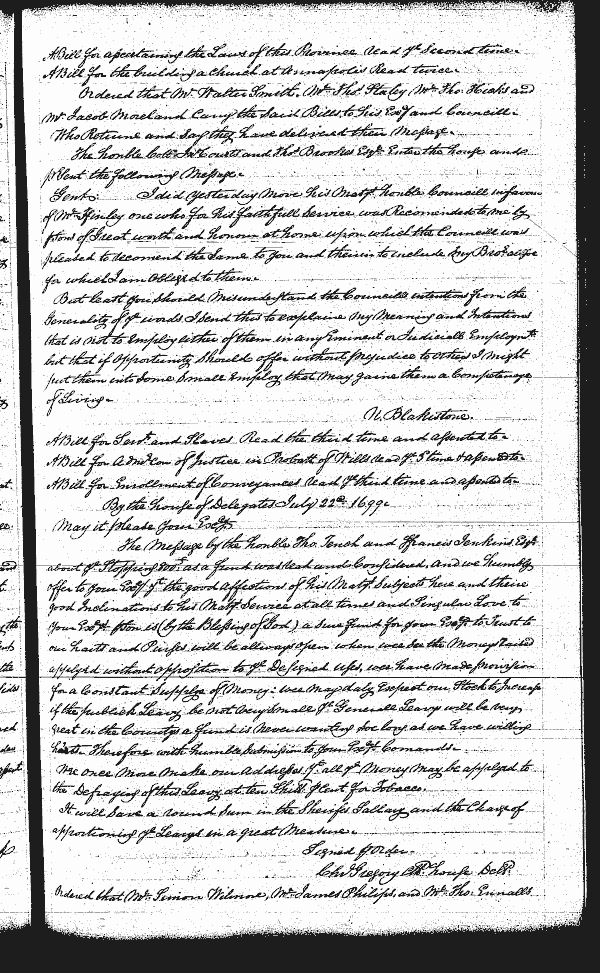 A Bill for ascertaining the Laws of this Province read ye Second time.
A Bill for the building a Church at Annapolis Read twice.
Ordered that Mr. Walter Smith, Mr. Tho: Staley Mr. Tho: Hicks and
Mr. Jacob Moreland Carry the said Bills to his Exy and Councill.
Who Returne and Say they have delivered their Message.
The honble Coll: Jno: Courts and Tho: Brookes Esqr. Enter the house and
psent the following Message.
Gent: I did yesterday Move his Matys honble Councill in favour
of Mr. Ffinley one who for his faithfull Service was Recomended to me by
psons of Great worth and honour at home upon which the Councill was
pleased to recomend the Same to you and therein to include my Bror alsoe
for which I am Obleged to them.
But least you should Misunderstand the Councills intentions from the
Generality of ye words I send this to explaine my Meaning and Intentions
that is not to Employ either of them in any Eminent or Judiciall Employmt
but that if Opportunity should offer without prejudice to others I might
put them into some Small Employ that may gaine them a Competencye
of Living.
N. Blakistone.
A Bill for Servts. and Slaves Read the third time and assented to.
A Bill for Admcon of Justice in Probate of Wills read ye 3 time & assented to.
A Bill for Enrollment of Conveyances read ye third time and assented to.
By the house of Delegates July 22th 1699.
May it please your Excy.
The Message by the honble Tho: Tench and Ffrancis Jenkins Esqrs
about ye Stopping as a fund was read and Considered, And we humbly
offer to your Excy yt the good Affections of his Matys Subjects here and their
good Inclinations to his Matys Service at all times and Singular Love to
your Excys pson is (by the Blessing of God) a sure fund for your Excy to Trust to
our harts and Purses will be allways open when wee See the Money raised
applyed without opposition to ye Designed uses, wee have made provision
for a Constant Supplye of Money: wee may daly Expect our Stock to Increase
if the publick Leavy be not very Small ye Generall Leavys will be very
great in the Countys a fund is Never wanting soe long as we have willing
harts. Therefore with humble Submission to your Excys Comands.
We once More make our Addresses yt all ye Money may be applyed to
the Defraying of this Leavy at ten Shill: p Cent for Tobacco.
It will Save a round Sum in the Sheriffs Sallary and the Charge of
apportioning ye Leavys in a great Measure.
Signed p Order.
Chr: Gregory Clk house Dels.
Ordered that Mr. Simon Wilmore, Mr. James Philips, and Mr. Tho: Ennalls